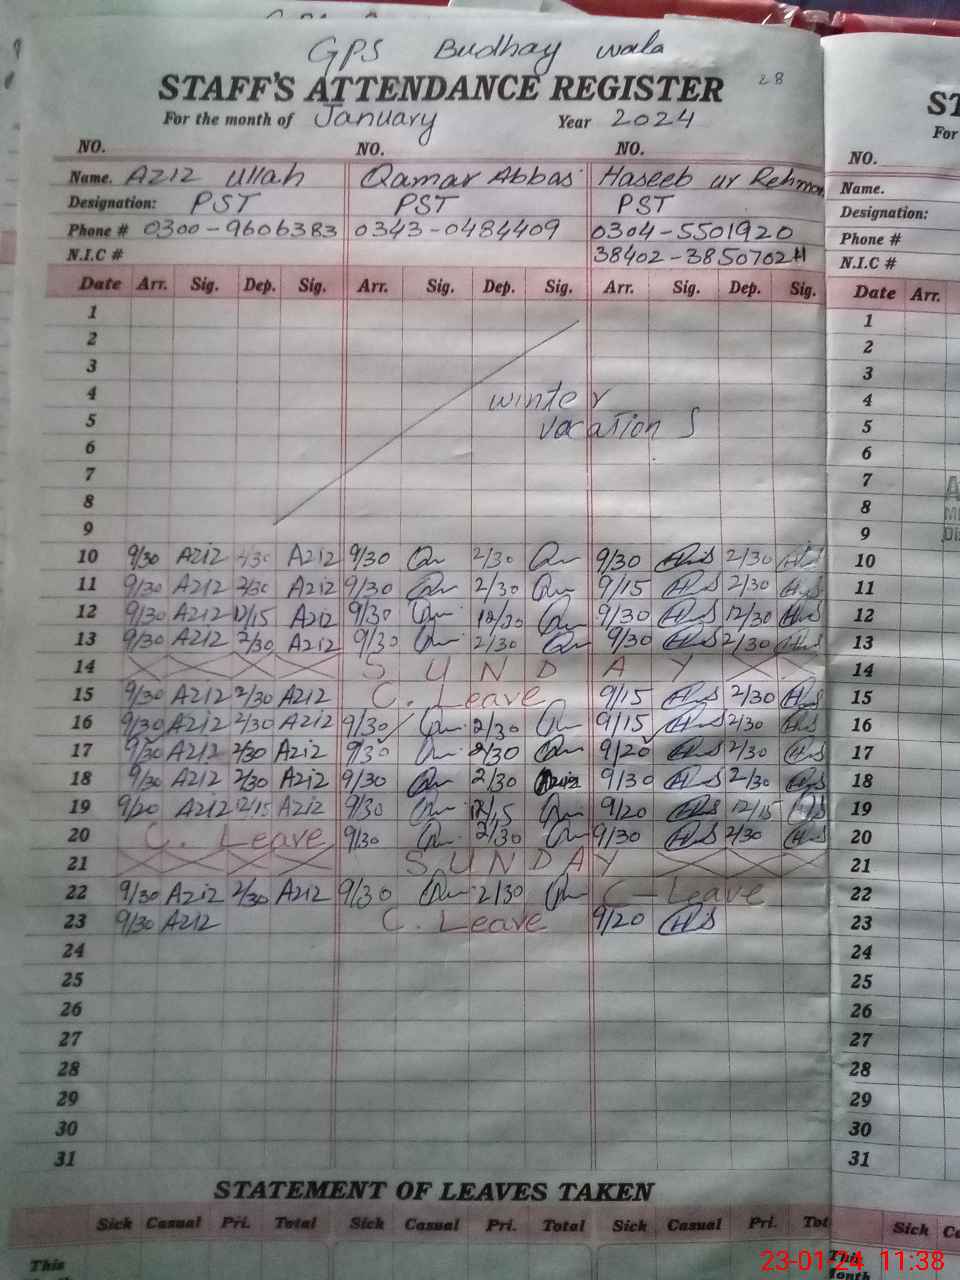 GPS Budhay wala
STAFF'S ATTENDANCE REGISTER 28
For the month of January Year 2024
NO. NO. NO.
Name. Aziz Ullah Qamar Abbas Haseeb ur Rehman
Designation: PST PST PST
Phone # 0300-9606383 0343-0484409 0304-5501920
N.I.C # 38402-3850702
Date Arr. Sig. Dep. Sig. Arr. Sig. Dep. Sig. Arr. Sig. Dep. Sig.
1
2
3
4 winter
5 vacation s
6
7
8
9
10 9/30 Aziz 2/30 Aziz 9/30 2/30 9/30 2/30
11 9/30 Aziz 2/30 Aziz 9/30 2/30 9/15 2/30
12 9/30 Aziz 12/15 Aziz 9/30 12/30 9/30 12/30
13 9/30 Aziz 2/30 Aziz 9/30 2/30 9/30 2/30
14 SUNDAY
15 9/30 Aziz 2/30 Aziz C. Leave 9/15 2/30
16 9/30 Aziz 2/30 Aziz 9/30 2/30 9/15 2/30
17 9/30 Aziz 2/30 Aziz 9/30 2/30 9/20 2/30
18 9/30 Aziz 2/30 Aziz 9/30 2/30 9/30 2/30
19 9/20 Aziz 12/15 Aziz 9/30 12/15 9/20 12/15
20 C. Leave 9/30 2/30 9/30 2/30
21 SUNDAY
22 9/30 Aziz 2/30 Aziz 9/30 2/30 C-Leave
23 9/30 Aziz C. Leave 9/20
24
25
26
27
28
29
30
31
STATEMENT OF LEAVES TAKEN
Sick Casual Pri. Total Sick Casual Pri. Total Sick Casual Pri. Tot
This
ST
For
NO.
Name.
Designation:
Phone #
N.I.C #
Date Arr.
1
2
3
4
5
6
7
8
9
10
11
12
13
14
15
16
17
18
19
20
21
22
23
24
25
26
27
28
29
30
31
Sick
This
23-01-24 11:38